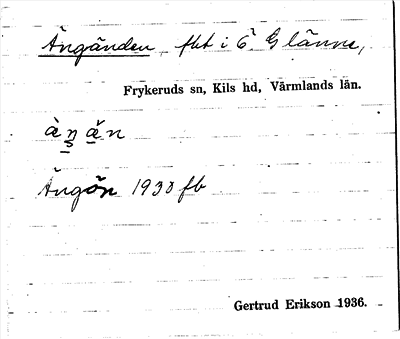 Ängänden, fht i Ö. Glänne,
Frykeruds sn, Kils hd, Värmlands län.
Ängön 1930 fb
Gertrud Erikson 1936.